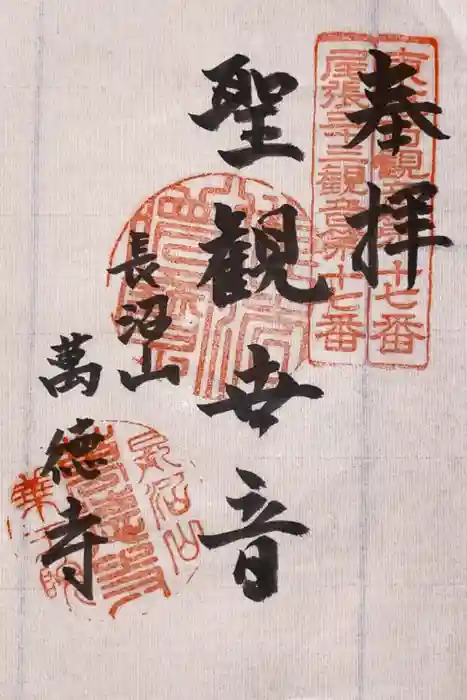 奉拝
東海百観音第十七番
尾張三十三観音第十七番
聖観世音
長沼山
萬徳寺
長沼山
萬徳寺